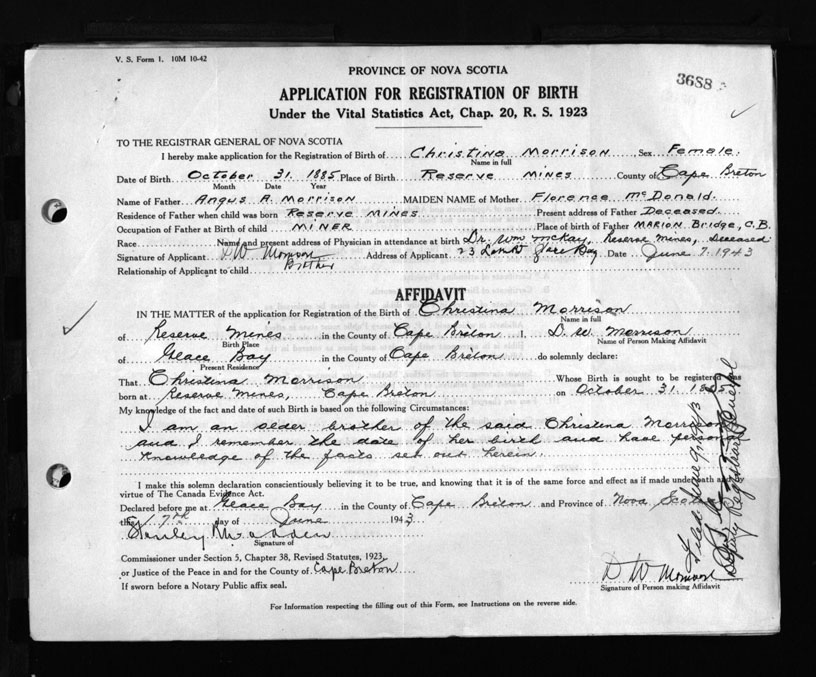 V. S. Form 1. 10M 10-42
3688
PROVINCE OF NOVA SCOTIA
APPLICATION FOR REGISTRATION OF BIRTH
Under the Vital Statistics Act, Chap. 20, R. S. 1923
TO THE REGISTRAR GENERAL OF NOVA SCOTIA
I hereby make application for the Registration of Birth of Christina Morrison Sex Female
Name in full
Date of Birth October 31. 1885 Place of Birth Reserve Mines County of Cape Breton
Month Date Year
Name of Father Angus A. Morrison MAIDEN NAME of Mother Florence McDonald.
Residence of Father when child was born Reserve Mines Present address of Father Deceased.
Occupation of Father at Birth of child MINER Place of birth of Father MARION Bridge, C.B.
Race Name and present address of Physician in attendance at birth Dr. Wm McKay, Reserve Mines, Deceased
Signature of Applicant D W Morrison Address of Applicant 23 Glace Bay Date June 7. 1943
Relationship of Applicant to child Brother
AFFIDAVIT
IN THE MATTER of the application for Registration of the Birth of Christina Morrison
Name in full
of Reserve Mines in the County of Cape Breton I, D. W. Morrison
Birth Place Name of Person Making Affidavit
of Glace Bay in the County of Cape Breton do solemnly declare:
Present Residence
That Christina Morrison Whose Birth is sought to be registered was
born at Reserve Mines, Cape Breton on October 31. 1885
My knowledge of the fact and date of such Birth is based on the following Circumstances:
I am an older brother of the said Christina Morrison
and I remember the date of her birth and have personal
knowledge of the facts set out herein.
I make this solemn declaration conscientiously believing it to be true, and knowing that it is of the same force and effect as if made under oath and
virtue of The Canada Evidence Act.
Declared before me at Glace Bay in the County of Cape Breton and Province of Nova Scotia
this 7th day of June 1943
Stanley
Signature of
Commissioner under Section 5, Chapter 38, Revised Statutes, 1923,
or Justice of the Peace in and for the County of Cape Breton
If sworn before a Notary Public affix seal.
D W Morrison
Signature of Person making Affidavit
For Information respecting the filling out of this Form, see Instructions on the reverse side.
Filed June 9, 1943
Deputy Registrar General